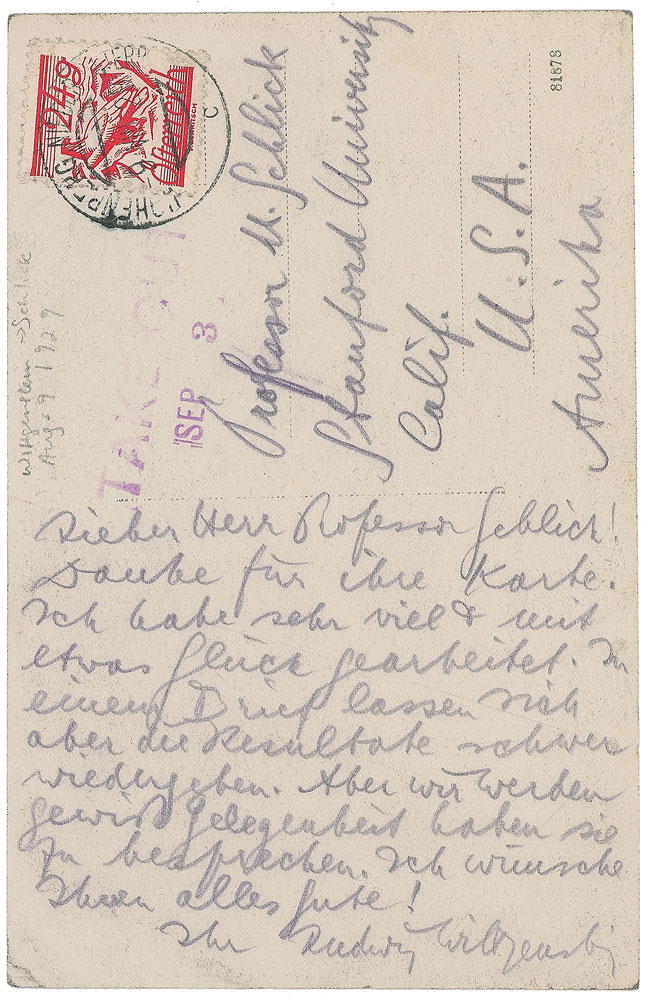 24g
Österreich
HOHENBERG
c
TAKE OUT
SEP 3
Wittgenstein → Schlick
Aug 9 1929
81878
Professor M. Schlick
Stanford University
Calif.
U.S.A.
Amerika
Lieber Herr Professor Schlick!
Danke für ihre Karte.
Ich habe sehr viel & mit
etwas Glück gearbeitet. In
einem Brief lassen sich
aber die Resultate schwer
wiedergeben. Aber wir werden
gewiß Gelegenheit haben sie
zu besprechen. Ich wünsche
Ihnen alles Gute!
Ihr Ludwig Wittgenstein